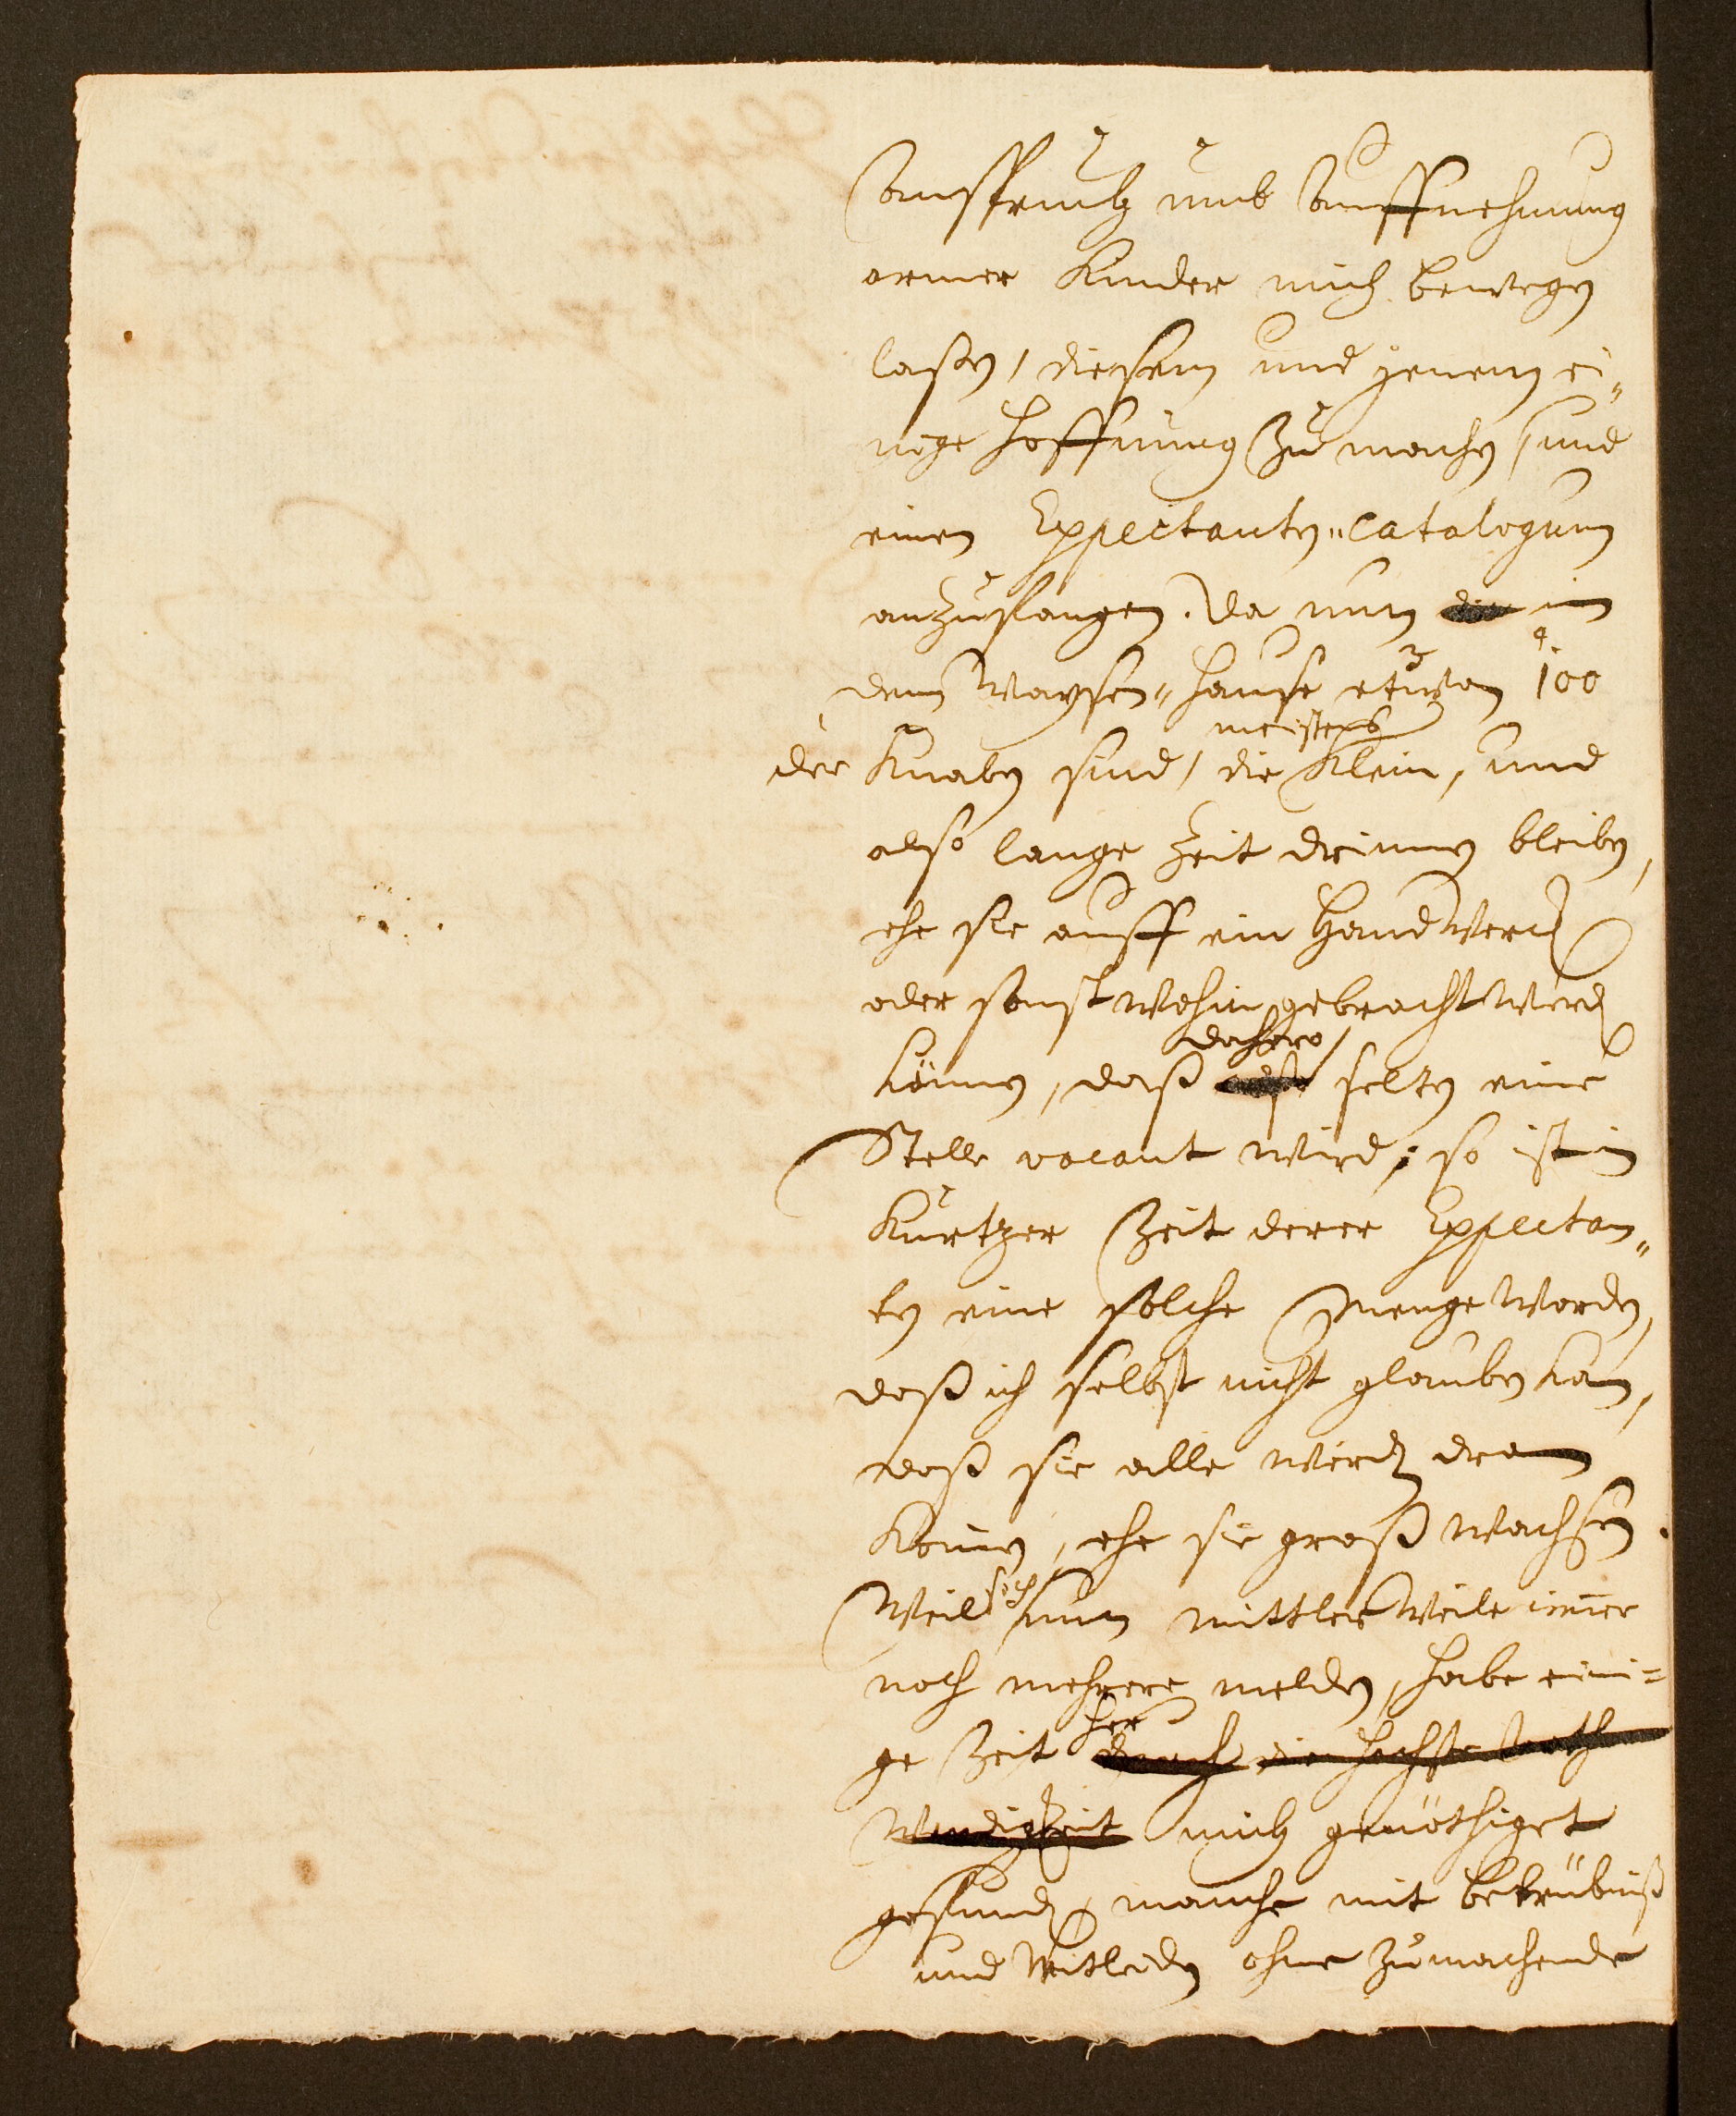 Anspruch umb Auffnehmung
armer Kinder mich bewegen
laßen, diesem und jenem ei„
nige Hoffnung zu machen, und
einen Expectanten„Catalogum
anzufangen. Da nun die in
dem Waysen„Hause etwan 100
meistens
der Knaben sind, die klein, und
also lange Zeit drinnen bleiben,
ehe sie auff ein Handwerck
oder sonst wohin gebracht werden
dahero
können, daß also selten eine
Stelle vacant wird; so ist in
kurtzer Zeit derer Expectan„
ten eine solche Menge worden,
daß ich selbst nicht glauben kan,
daß sie alle werden dran
komen, ehe sie groß wachsen.
Weil sich nun mittler Weile im̅er
noch mehrere melden, habe eini=
her
ge Zeit durch die höchste Noth
wendigkeit mich genöthiget
gefunden, manche mit betrübniß
und Mitleiden ohne zumachende